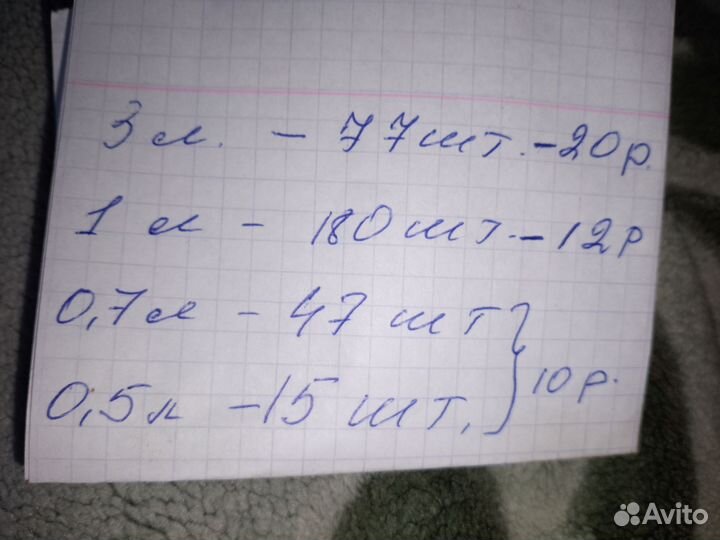 3 л. - 77 шт. - 20 р.
1 л - 180 шт. - 12 р
0,7 л - 47 шт
0,5 л - 15 шт. } 10 р.
Avito